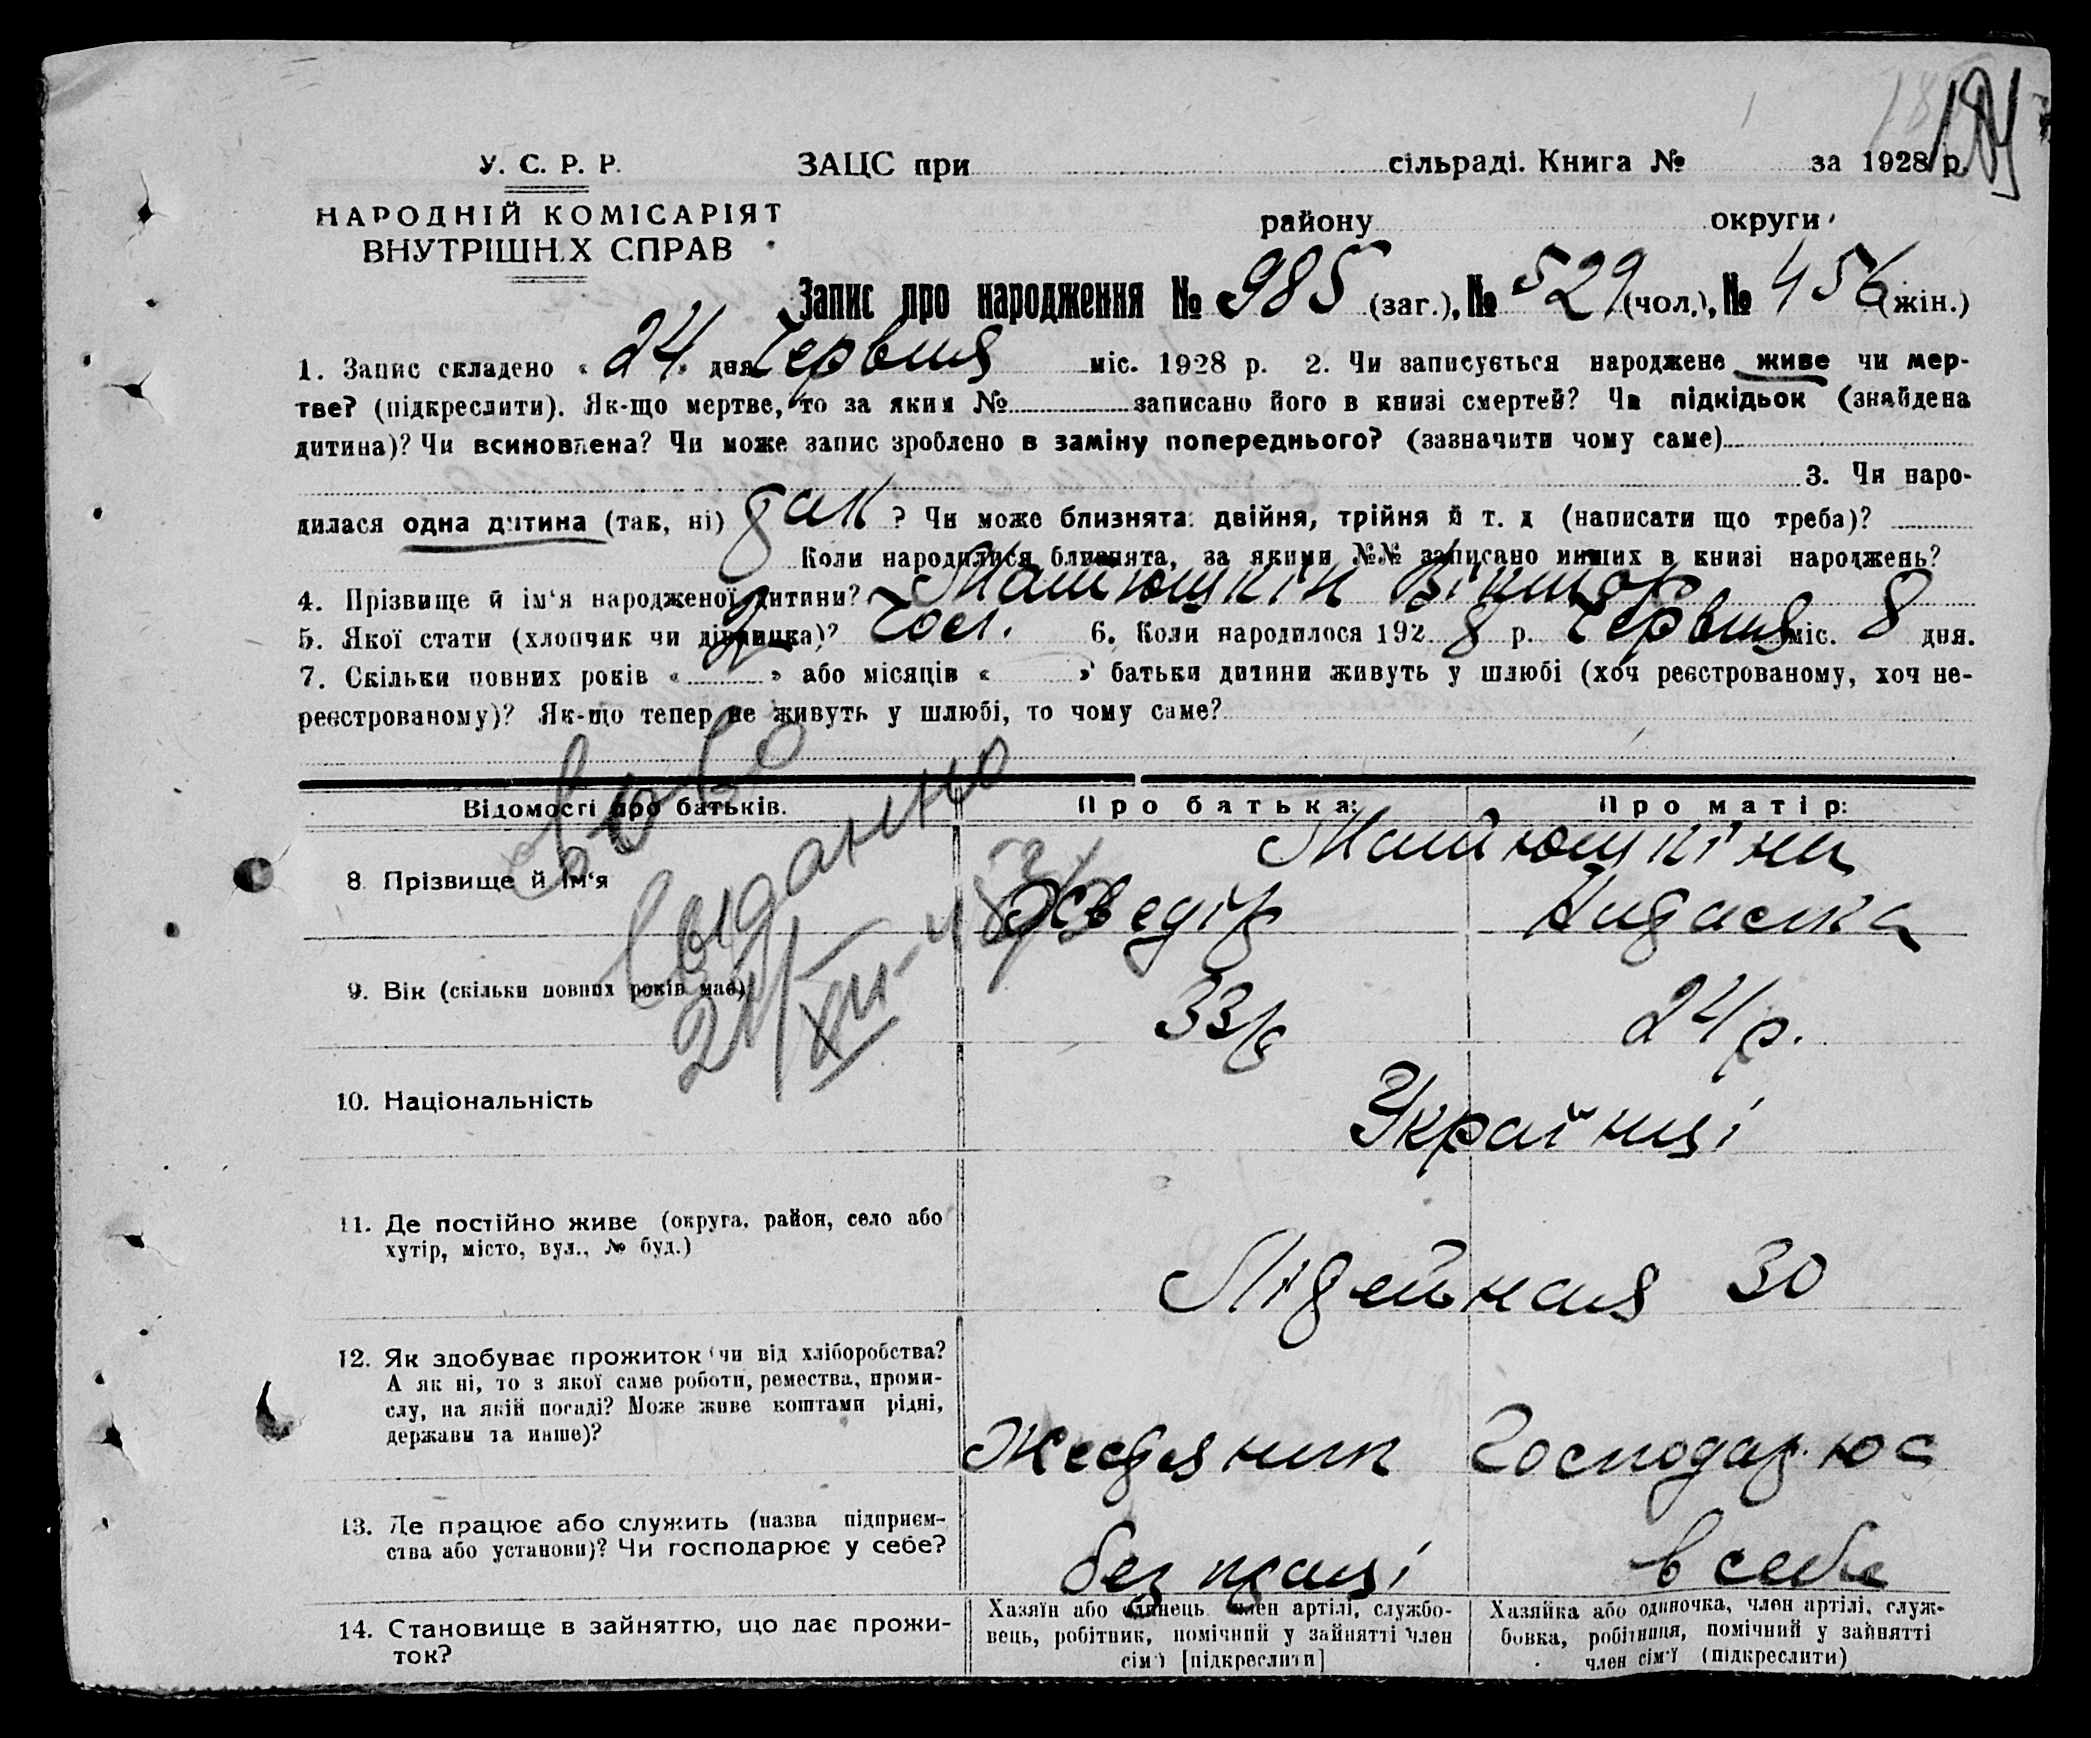 У. С. Р. Р.
ЗАЦС при сільраді. Книга № за 1928 р.
НАРОДНІЙ КОМІСАРІЯТ
ВНУТРІШН.Х СПРАВ
району округи
Запис про народження № 985 (заг.), № 529 (чол.), № 456 (жін.)
1. Запис складено « 24 » дня Червня міс. 1928 р. 2. Чи записується народжене живе чи мер-
тве? (підкреслити). Як-що мертве, то за яким № записано його в книзі смертей? Чи підкідьок (знайдена
дитина)? Чи всиновлена? Чи може запис зроблено в заміну попереднього? (зазначити чому саме)
3. Чи наро-
дилася одна дитина (так, ні) так ? Чи може близнята: двійня, трійня й т. д (написати що треба)?
Коли народилися близнята, за якими №№ записано инших в книзі народжень?
4. Прізвище й ім'я народженої дитини? Матюшкін Віктор
5. Якої стати (хлопчик чи дівчинка)? Чол. 6. Коли народилося 192 8 р. Червня міс. 8 дня.
7. Скільки повних років « » або місяців « » батьки дитини живуть у шлюбі (хоч реєстрованому, хоч не-
реєстрованому)? Як-що тепер не живуть у шлюбі, то чому саме?
Відомості про батьків. Про батька: Про матір:
Матюшкіни
8. Прізвище й ім'я
9. Вік (скільки повних років має) 33 р 24 р.
выданно
21/XII-
10. Національність Українці
11. Де постійно живе (округа, район, село або
хутір, місто, вул., № буд.)
Літейная 30
12. Як здобуває прожиток (чи від хліборобства?
А як ні, то з якої саме роботи, ремества, проми-
слу, на якій посаді? Може живе коштами рідні,
держави та инше)?
Жестяник Господарює
13. Де працює або служить (назва підприєм-
ства або установи)? Чи господарює у себе?
без праці в себе
14. Становище в зайняттю, що дає прожи-
ток?
Хазяїн або одинець член артілі, службо-
вець, робітник, помічний у зайнятті член
сім'ї [підкреслити]
Хазяйка або одиночка, член артілі, служ-
бовка, робітниця, помічний у зайнятті
член сім'ї (підкреслити)